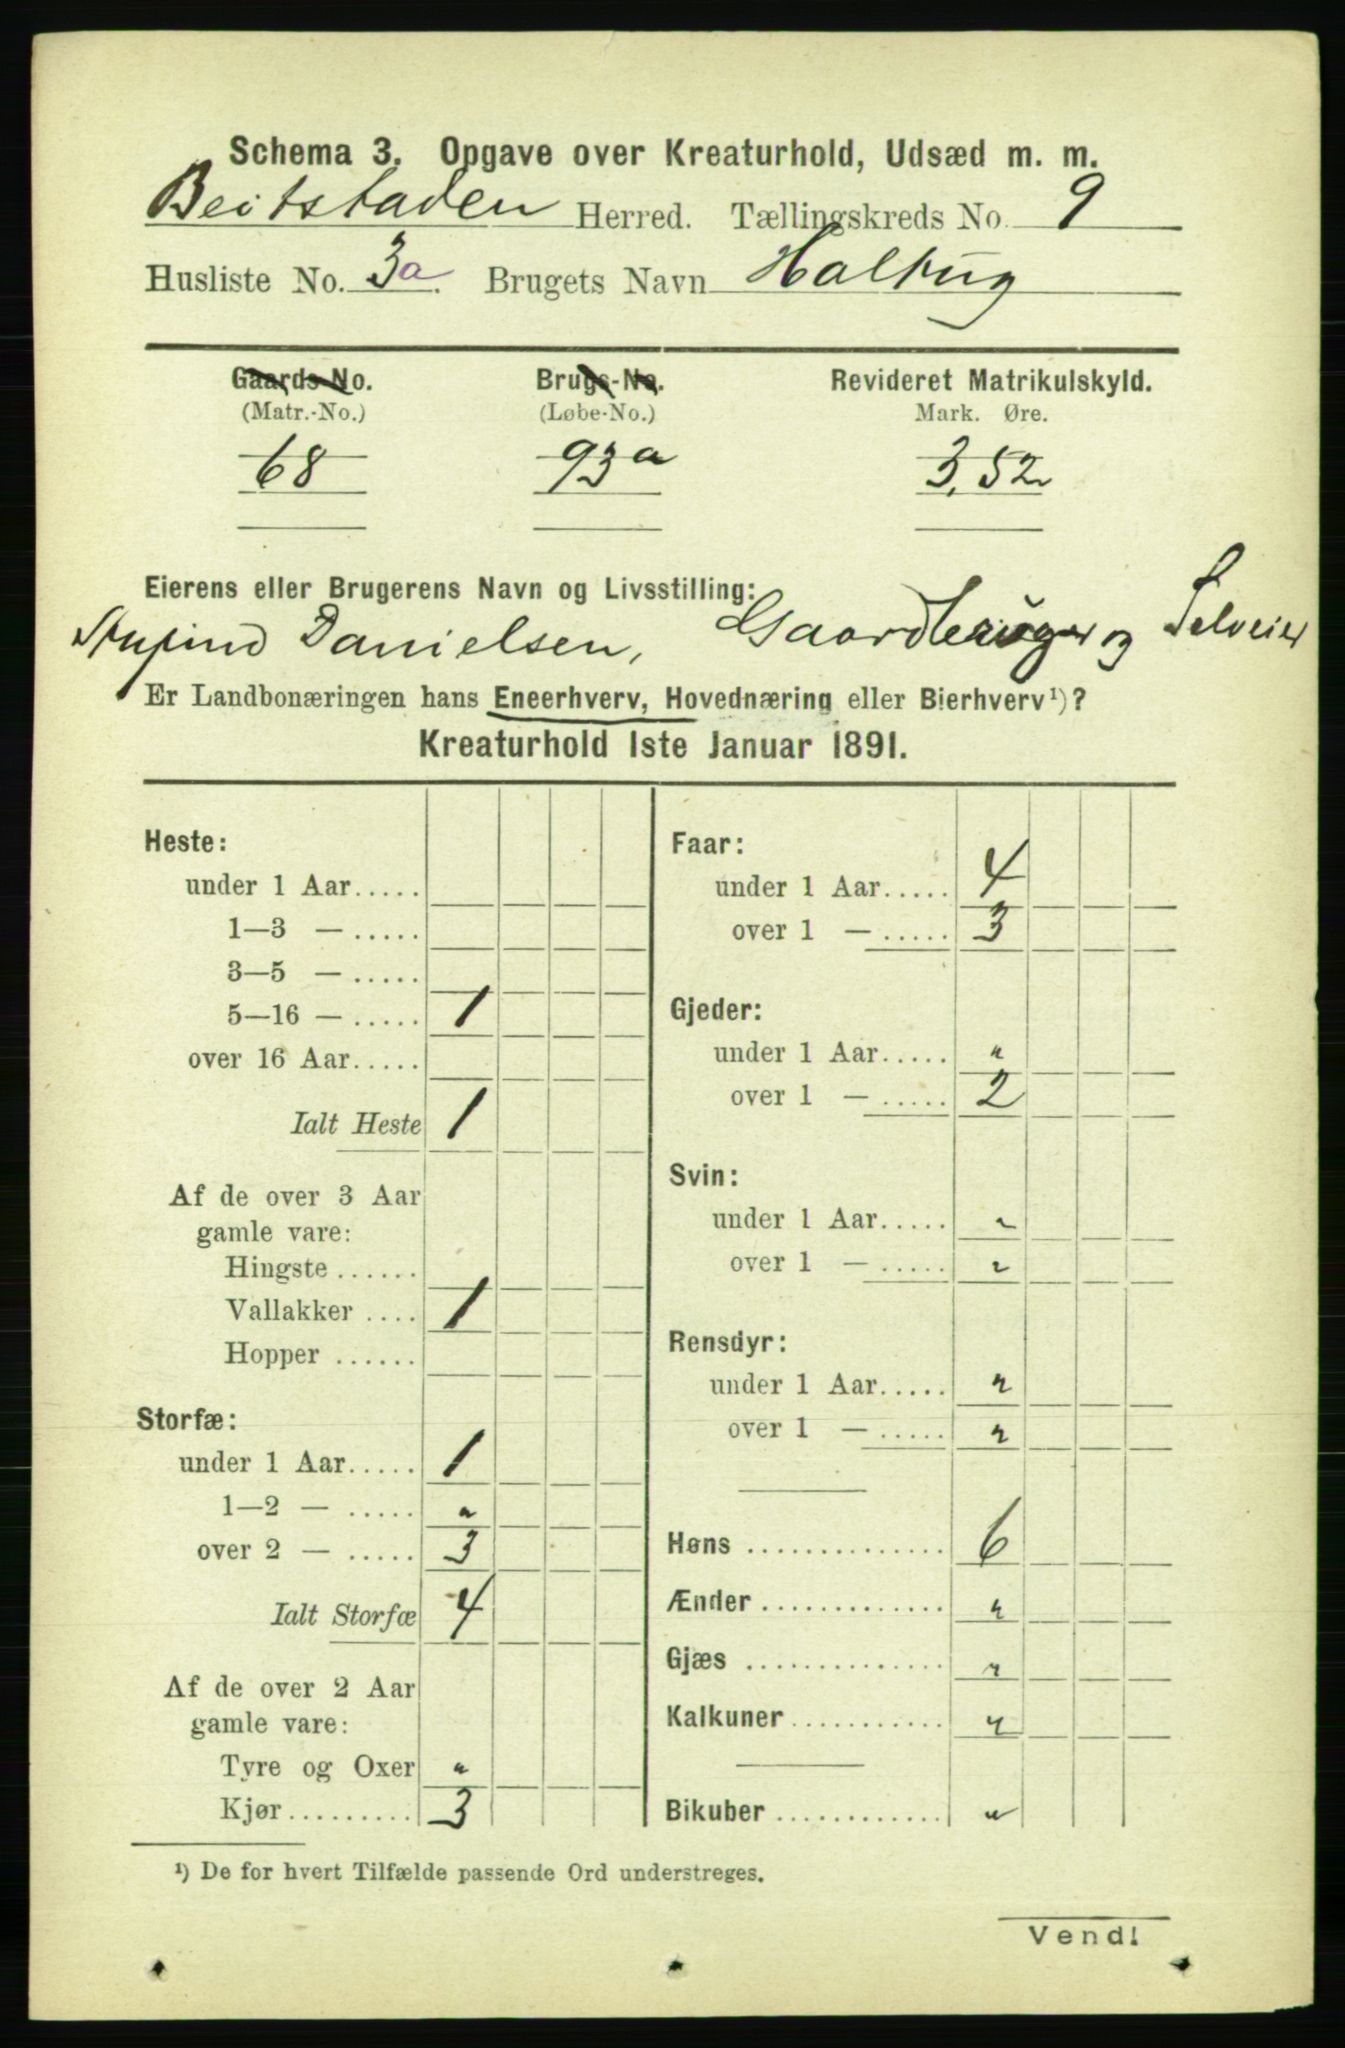 Schema 3. Opgave over Kreaturhold, Udsæd m. m.
Beitstaden Herred. Tællingskreds No. 9
Husliste No. 3a. Brugets Navn
Gaards-No. Brugs-No. Revideret Matrikulskyld.
(Matr.-No.) (Løbe-No.) Mark. Øre.
68 93a 3,52
Eierens eller Brugerens Navn og Livsstilling:
Danielsen, Gaardbruger og Selveier
Er Landbonæringen hans Eneerhverv, Hovednæring eller Bierhverv¹)?
Kreaturhold 1ste Januar 1891.
Heste:
under 1 Aar.....
1—3 — .....
3—5 — .....
5—16 — ..... 1
over 16 Aar.....
Ialt Heste 1
Af de over 3 Aar
gamle vare:
Hingste ......
Vallakker .... 1
Hopper ......
Storfæ:
under 1 Aar..... 1
1—2 — ..... "
over 2 — ..... 3
Ialt Storfæ 4
Af de over 2 Aar
gamle vare:
Tyre og Oxer "
Kjør ......... 3
Faar:
under 1 Aar..... 4
over 1 — ..... 3
Gjeder:
under 1 Aar..... "
over 1 — ..... 2
Svin:
under 1 Aar..... "
over 1 — ..... "
Rensdyr:
under 1 Aar..... "
over 1 — ..... "
Høns .............. 6
Ænder ............. "
Gjæs .............. "
Kalkuner ........... "
Bikuber ............ "
¹) De for hvert Tilfælde passende Ord understreges.
Vend!